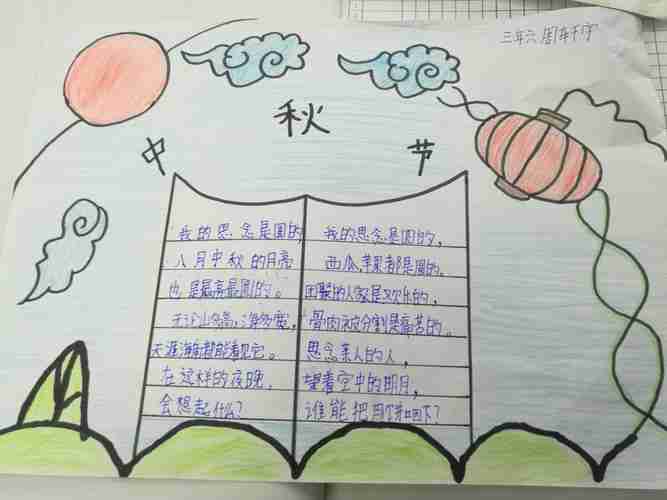 三年六 周轩宇
中 秋 节
我的思念是圆的
八月中秋的月亮
也是最亮最圆的。
无论山多高,海多宽,
天涯海角都能看见它。
在这样的夜晚,
会想起什么?
我的思念是圆的,
西瓜,苹果都是圆的。
团聚的人家是欢乐的,
骨肉被分割是痛苦的。
思念亲人的人,
望着空中的明月,
谁能把月饼咽下?